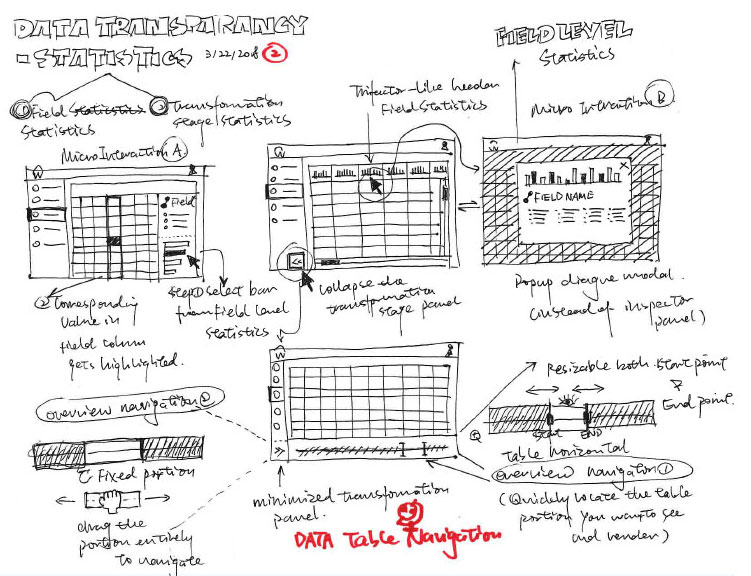 DATA TRANSPARANCY
- STATISTICS 3/22/2018 2
① Field Statistics
Statistics
② Transformation
stage/statistics
FIELD LEVEL
Statistics
Trifactor-like header
Field Statistics
Micro Interaction A
Micro Interaction B
Field
FIELD NAME
<<
② Corresponding
Value in
field column
gets highlighted.
Step① select bar
from Field level
statistics
collapse the
transformation
stage panel
Popup dialogue modal.
(instead of inspector
panel)
overview navigation②
Fixed portion
drag the
portion entirely
to navigate
>>
minimized transformation
panel.
DATA Table Navigation
Resizable both start point
&
End point.
Start END
Table horizontal
overview navigation①
(Quickly locate the table
portion you want to see
and render)